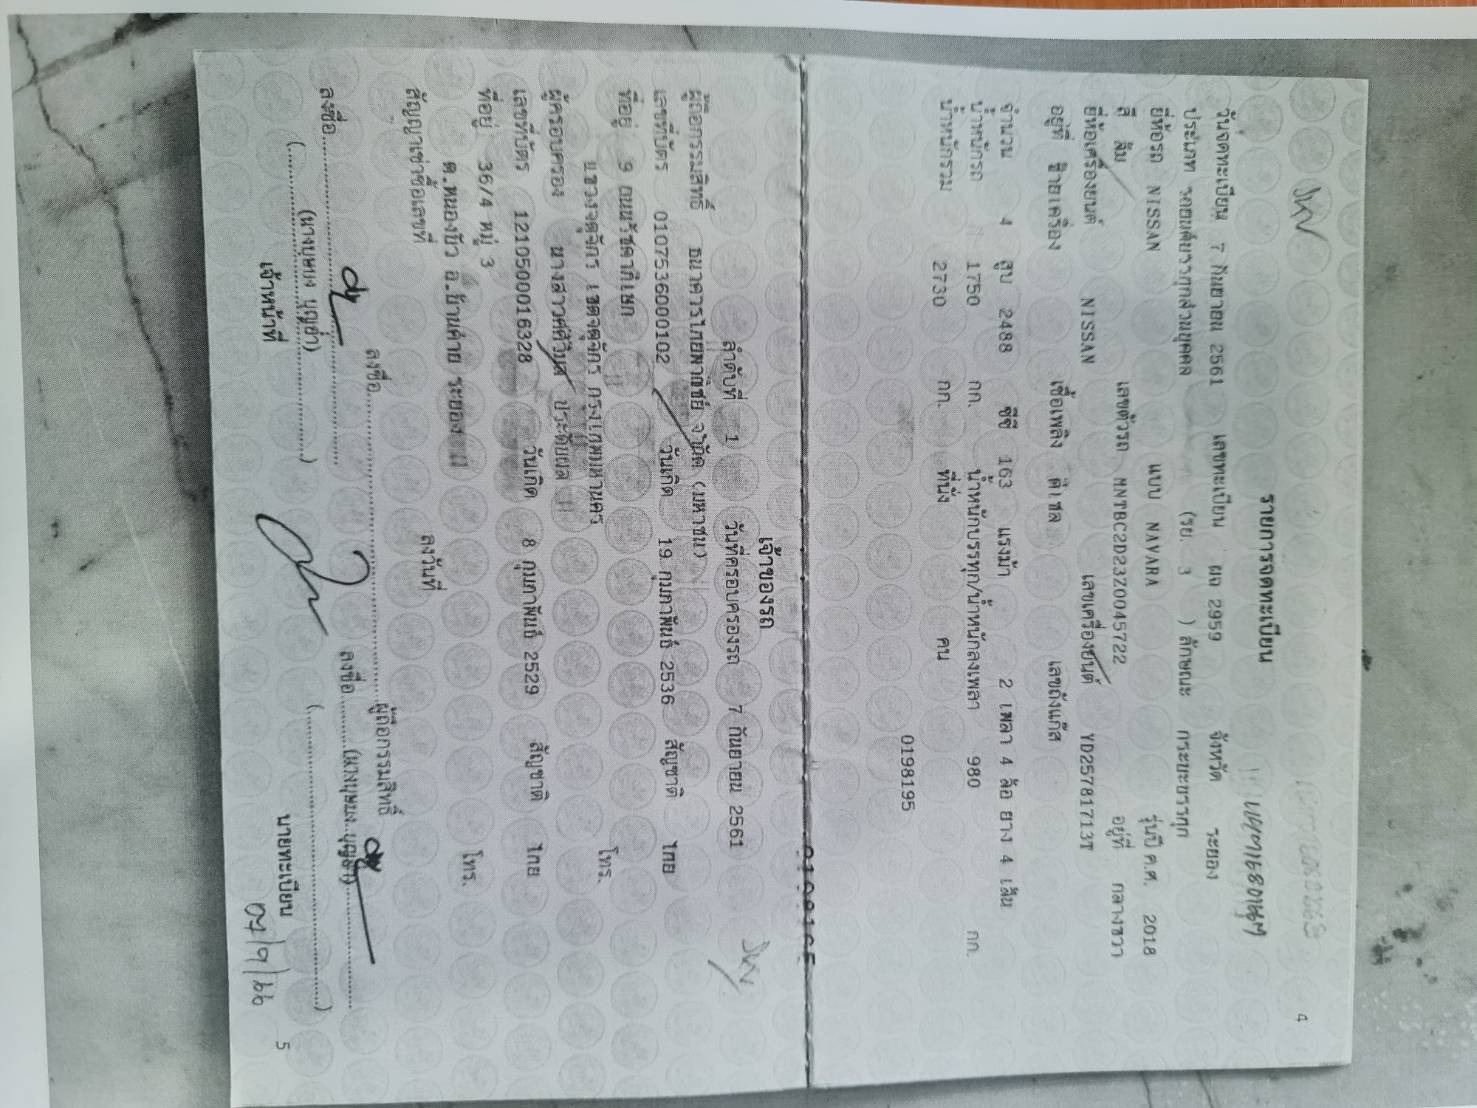 4
รายการจดทะเบียน
วันจดทะเบียน 7 กันยายน 2561 เลขทะเบียน ผจ 2959 จังหวัด ระยอง
ประเภท รถยนต์บรรทุกส่วนบุคคล (รย. 3 ) ลักษณะ กระบะบรรทุก
ยี่ห้อรถ NISSAN แบบ NAVARA รุ่นปี ค.ศ. 2018
สี ส้ม เลขตัวรถ MNTBC2D23Z0045722 อยู่ที่ กลางขวา
ยี่ห้อเครื่องยนต์ NISSAN เลขเครื่องยนต์ YD25781713T
อยู่ที่ ซ้ายเครื่อง เชื้อเพลิง ดีเซล เลขถังแก๊ส
จำนวน 4 สูบ 2488 ซีซี 163 แรงม้า 2 เพลา 4 ล้อ ยาง 4 เส้น
น้ำหนักรถ 1750 กก. น้ำหนักบรรทุก/น้ำหนักลงเพลา 980 กก.
น้ำหนักรวม 2730 กก. ที่นั่ง คน
0198195
เจ้าของรถ
ลำดับที่ 1 วันที่ครอบครองรถ 7 กันยายน 2561
ผู้ถือกรรมสิทธิ์ ธนาคารไทยพาณิชย์ จำกัด (มหาชน)
เลขที่บัตร 0107536000102 วันเกิด 19 กุมภาพันธ์ 2536 สัญชาติ ไทย
ที่อยู่ 9 ถนนรัชดาภิเษก โทร.
แขวงจตุจักร เขตจตุจักร กรุงเทพมหานคร
ผู้ครอบครอง นางสาวศศิวิมล ประดับผล
เลขที่บัตร 1210500016328 วันเกิด 8 กุมภาพันธ์ 2529 สัญชาติ ไทย
ที่อยู่ 36/4 หมู่ 3 โทร.
ต.หนองบัว อ.บ้านค่าย ระยอง
สัญญาเช่าซื้อเลขที่ ลงวันที่
ลงชื่อ ผู้ถือกรรมสิทธิ์
ลงชื่อ ลงชื่อ
(นางบุษบง บุญช่ำ) (นางบุษบง บุญช่ำ)
เจ้าหน้าที่ นายทะเบียน
07/9/66
5